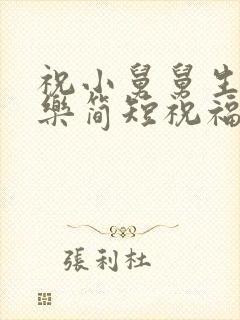 祝小舅舅生
樂简短祝福
張利杜